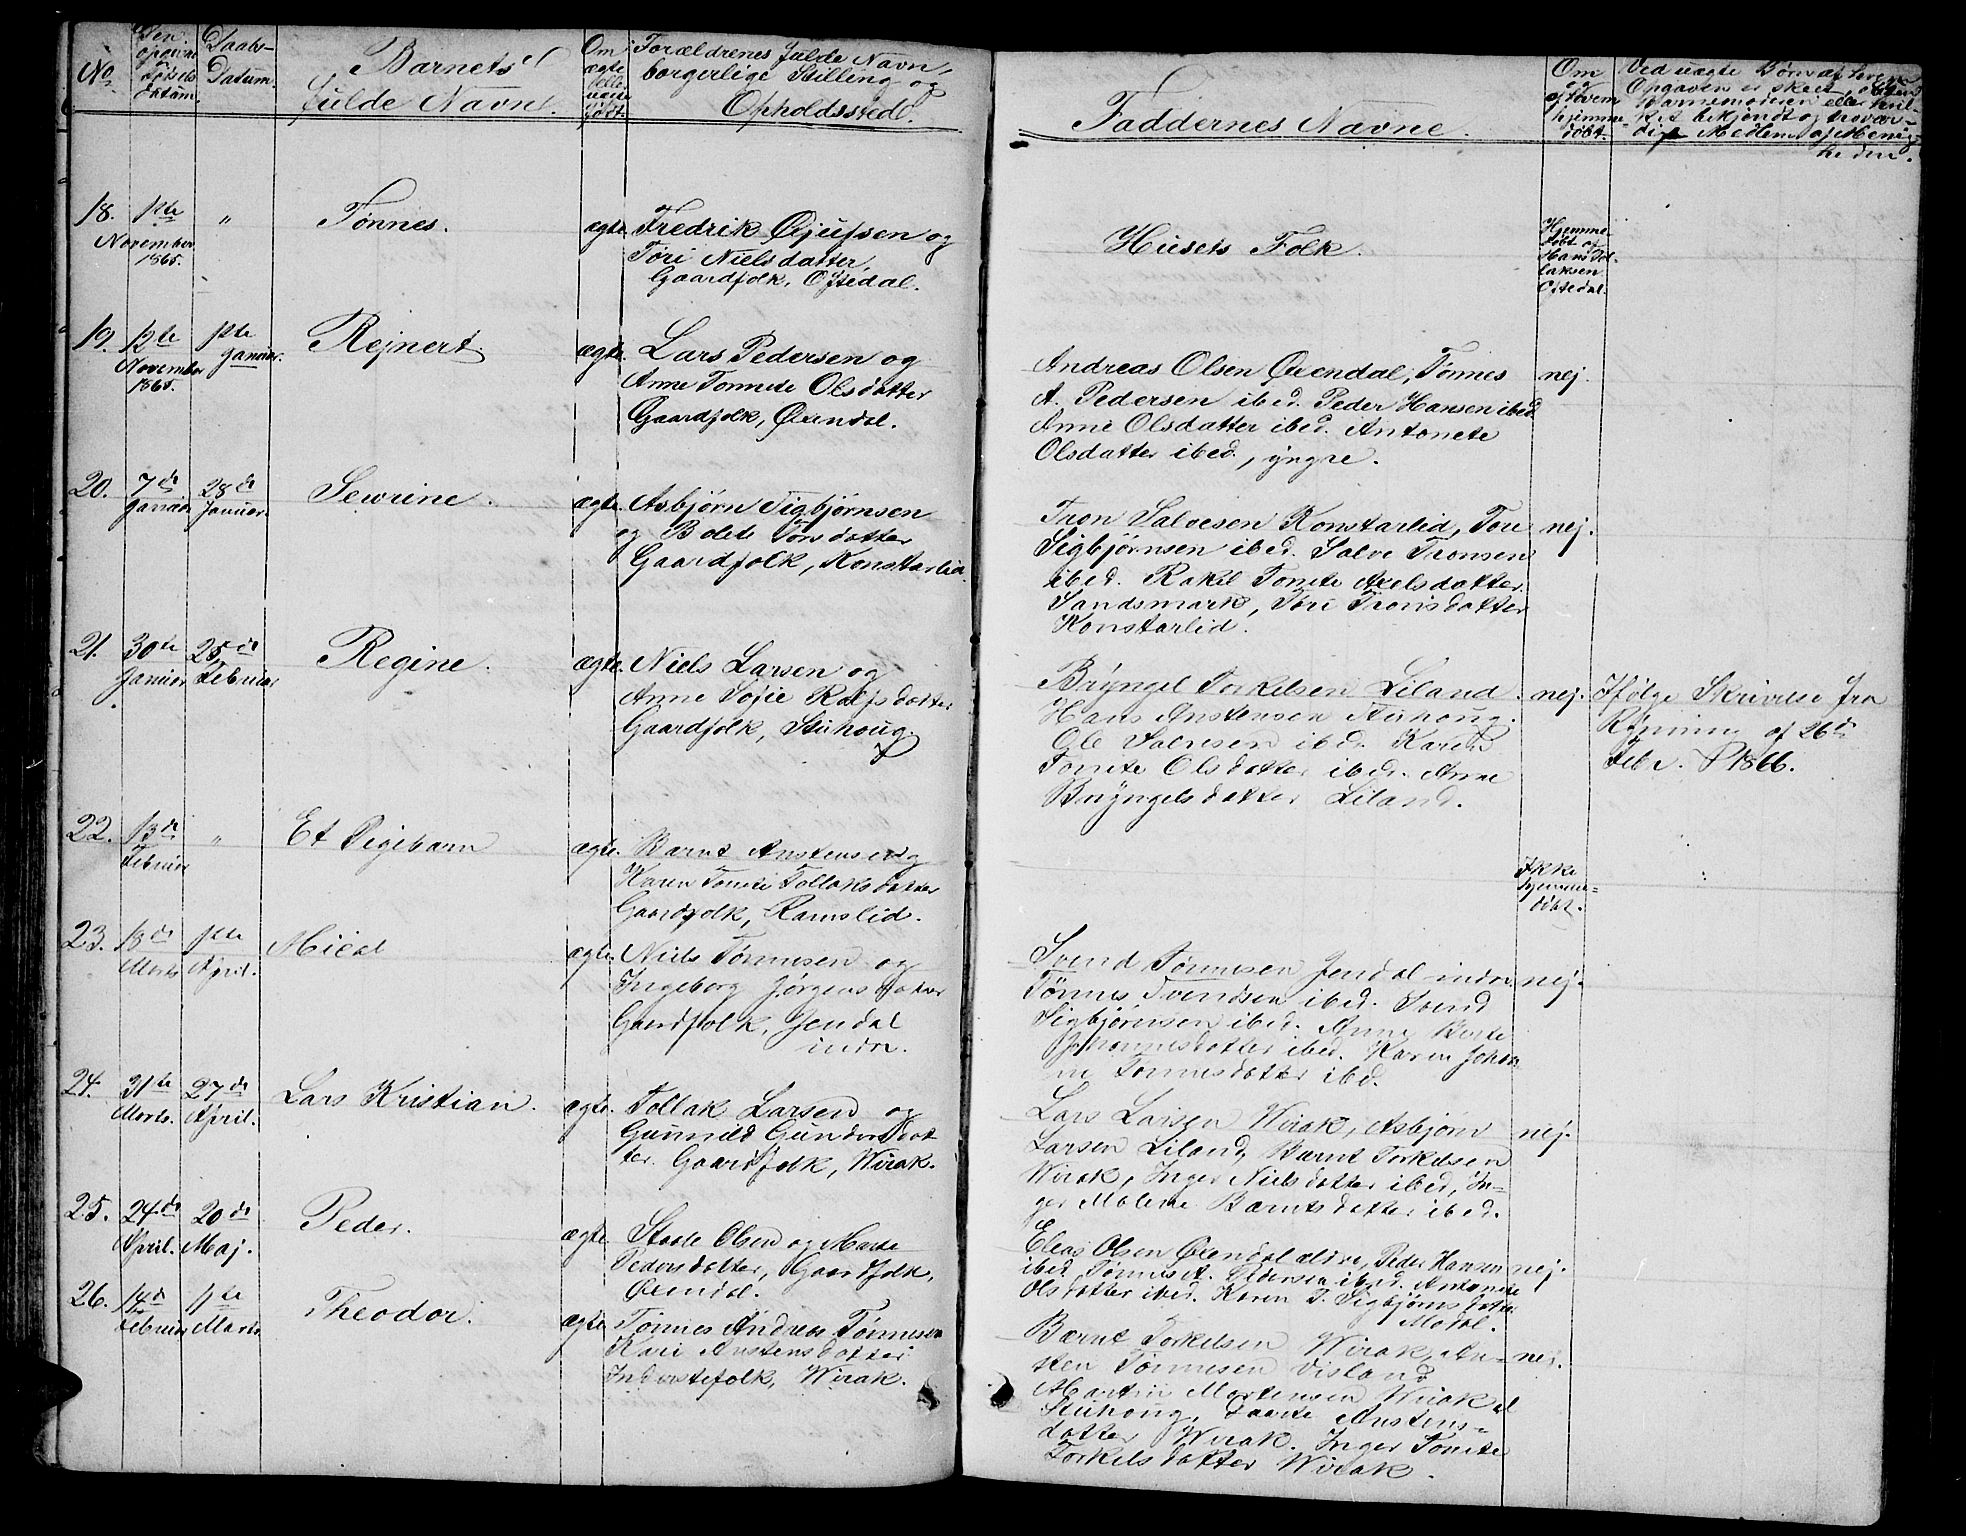 No
Den opgivne Fødsels datum.
Daabs-
Datum.
Barnets
fulde Navn.
Om
ægte
eller
uægte
født.
Forældrenes fulde Navn,
borgerlige Stilling og
Opholdssted.
Faddernes Navne.
Om
og
af hvem
hjemme-
døbt.
Ved uægte Børn af hvem
Opgaven er skeet, enten
Barnemoderen eller hvil-
ket bekjendt og trovær-
dige Medlem af Menig-
heden.
18.
1ste
November
1865.
"
Tønnes.
ægte.
Fredrik Gjufsen og
Tori Nielsdatter,
Gaardfolk, Oftedal.
Husets Folk.
Hjemme-
døbt af
Hans Tol
laksen
Oftedal.
19.
12te
November
1865.
1ste
Januar.
Rejnert.
ægte.
Lars Pedersen og
Anne Tonnete Olsdatter
Gaardfolk, Øxendal.
Andreas Olsen Øxendal, Tønnes
A. Pedersen ibed. Peder Hansen ibed
Anne Olsdatter ibed. Antonete
Olsdatter ibed, yngre.
nej.
20.
7de
Januar
28de
Januar.
Sewrine.
ægte.
Asbjørn Sigbjørnsen
og Bolete Torsdatter
Gaardfolk, Konstarlid.
Tron Salvesen Konstarlid, Tore
Sigbjørnsen ibed. Salve Tronsen
ibed. Rakel Tonete Axelsdatter
Sandsmark, Tori Tronsdatter
Konstarlid.
nej.
21.
30te
Januar
25de
Februar
Regine.
ægte.
Niels Larsen og
Anne Sofie Rolfsdatter
Gaardfolk, Stuhoug.
Bryngel Torkelsen Liland.
Hans Anstensen Stuhoug.
Ole Salvesen ibed. Karen
Tonete Olsdatter ibed. Anne
Bryngelsdatter Liland.
nej.
Ifølge Skrivelse fra
af 26de
Febr. 1866.
22.
13de
Februar
"
Et Pigebarn
ægte.
Bærnt Anstensen og
Karen Tonete Tollaksdatter
Gaardfolk, Ramslid.
Ikke
hjemme-
døbt.
23.
13de
Marts
1ste
April.
Mical
ægte.
Niels Tønnesen og
Ingeborg Jørgensdatter
Gaardfolk, Jendal
indre.
Svend Tønnesen Jendal indre
Tønnes Svendsen ibed. Svend
Sigbjørnsen ibed. Anne Berte
Johannesdatter ibed. Karen Johan
ne Tønnesdatter ibd.
nej.
24.
31te
Marts.
27de
April.
Lars Kristian.
ægte.
Tollak Larsen og
Gunnild Gundersdat
ter. Gaardfolk, Wirak.
Lars Larsen Wirak, Asbjørn
Larsen Liland, Bærnt Torkelsen
Wirak, Inger Nielsdatter ibed, In-
ger Malene Bærntsdatter ibed.
nej.
25.
24de
April.
20de
Maj.
Peder.
ægte.
Staale Olsen og Marte
Pedersdatter, Gaardfolk,
Øxendal.
Elias Olsen Øxendal ældre, Peder Hansen
ibed, Tønnes A. Pedersen ibed. Antonete
Olsdatter ibed. Karen T. Sigbjørnsdatter
Modal.
nej.
26.
14de
Februar
1ste
Marts.
Theodor.
ægte
Tønnes Andreas Tønnesen
Kari Anstensdatter
Inderstefolk, Wirak.
Bærnt Torkelsen Wirak, An-
sten Tønnesen Visland
Martin Mortensen Wirak
Stuhoug, Anstens-
datter Wirak. Inger Tonete
Torkelsdatter Wirak.
nej.